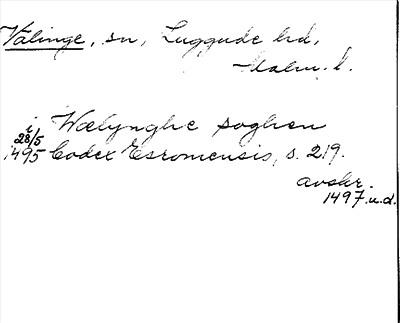 Välinge, sn, Luggude hd,
Malm. l.
i Wælynghe soghen
28/5
1495 Codex Esromensis, s. 219.
avskr.
1497 u.d.